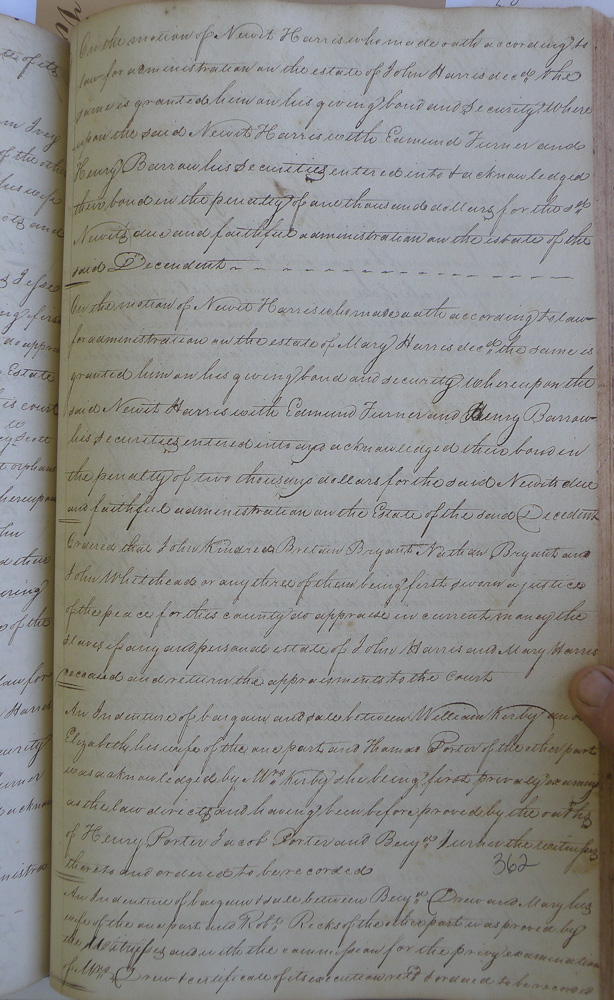 On the motion of Newit Harris who made oath according to
law for administration on the estate of John Harris decd. the
same is granted him on his giving bond and Security Where
upon the said Newit Harris with Edmund Turner and
Henry Barrow his Securities entered into & acknowledged
their bond in the penalty of one thousand dollars for the sd.
Newits due and faithful administration on the estate of the
said Decendent
On the motion of Newit Harris who made oath according to law
for administration on the estate of Mary Harris decd. the same is
granted him on his giving bond and security Whereupon the
said Newit Harris with Edmund Turner and Henry Barrow
his Securities entered into and acknowledged their bond in
the penalty of two thousand dollars for the said Newits due
and faithful administration on the Estate of the said Decedent
Ordered that John Kindred Britain Bryant Nathan Bryant and
John Whitehead or any three of them being first sworn a justice
of the peace for this county do appraise in current money the
slaves if any and personal estate of John Harris and Mary Harris
deceased and return the appraisments to the Court
An Indenture of bargain and sale between William Kirby and
Elizabeth his wife of the one part and Thomas Porter of the other part
was acknowledged by Mrs. Kirby she being first privaly examined
as the law directs and having been before proved by the oaths
of Henry Porter Jacob Porter and Benjn. Turner the witnesses
thereto and ordered to be recorded
362
An Indenture of bargain & sale between Benjn. Drew and Mary his
wife of the one part and Robt. Ricks of the other part was proved by
the Witnesses and with the commission for the privy examination
of Mrs. Drew & certificate of its execution retd. & ordered to be recorded